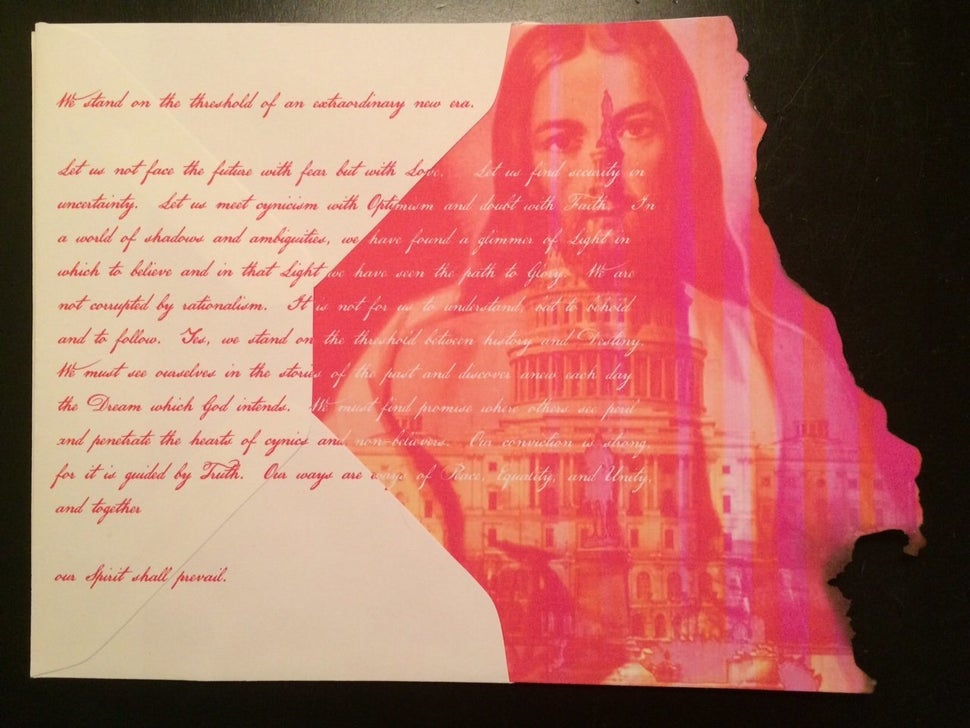 We stand on the threshold of an extraordinary new era.
Let us not face the future with fear but with Love. Let us find security in
uncertainty. Let us meet cynicism with Optimism and doubt with Faith. In
a world of shadows and ambiguities, we have found a glimmer of Light in
which to believe and in that Light we have seen the path to Glory. We are
not corrupted by rationalism. It is not for us to understand, but to behold
and to follow. Yes, we stand on the threshold between history and Destiny.
We must see ourselves in the stories of the past and discover anew each day
the Dream which God intends. We must find promise where others see peril
and penetrate the hearts of cynics and non-believers. Our conviction is strong,
for it is guided by Truth. Our ways are ways of Peace, Equality, and Unity,
and together
our Spirit shall prevail.